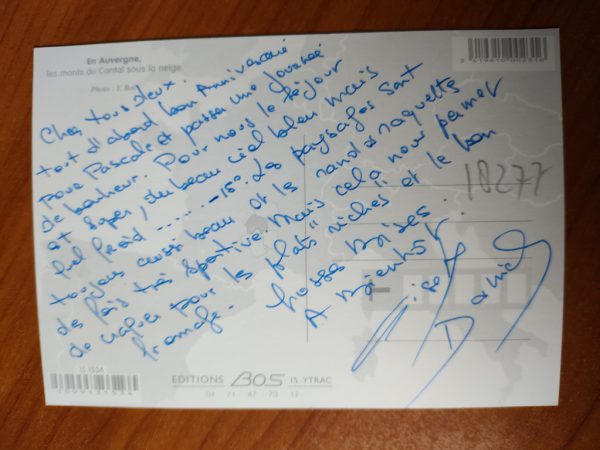 En Auvergne,
les monts du Cantal sous la neige.
Photo : Y.
3 419810 002316
Chers tous deux.
tout d'abord bon Anniversaire
Pour Pascale et passer une journée
de bonheur. Pour nous le séjour
est super, du beau ciel bleu mais
fait froid ...... -15°. Les paysages sont
toujours aussi beau et les randos raquettes
des fois très sportive. Mais cela nous permet
de craquer pour les plats "riches" et le bon
fromage.
Grosses Bises.
A Bientôt
Daniel
18277
IS 1534
EDITIONS BOS IS YTRAC
04 71 47 73 12